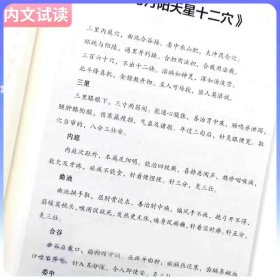 内文试读
丹阳天星十二穴》
三里内庭穴，曲池合谷接。委中承山配，太冲昆仑穴。
环跳与阳陵，通里并列缺。合担用法担，合截用法截。
三百六十穴，不出十二诀。治病如神灵，浑如汤泼雪。
北斗降真机，金锁教开彻。至人可传授，匪人莫浪说。
三里
三里膝眼下，三寸两筋间。能通心腹胀，善治胃中寒，肠鸣并泄泻，
腿肿膝胻酸，伤寒羸瘦损，气蛊及诸般。年过三旬后，针灸眼便宽。取
穴当审的，八分三壮安。
内庭
内庭次趾外，本属足阳明。能治四肢厥，喜静恶闻声，瘾疹咽喉痛，
数欠及牙疼，疟疾不能食，针着便惺惺。针三分，灸三壮。
曲池
曲池拱手取，屈肘骨边求。善治肘中痛，偏风手不收，挽弓开不得，
筋缓莫梳头，喉闭促欲死，发热更无休，遍身风癣癞，针着即时瘳。针五分，
灸三壮。
合谷
合谷在虎口，两指岐骨间。头疼并面肿，疟病热还寒，齿龋鼻衄血，
口噤不开言。针入五分深，令人即便安。
委中